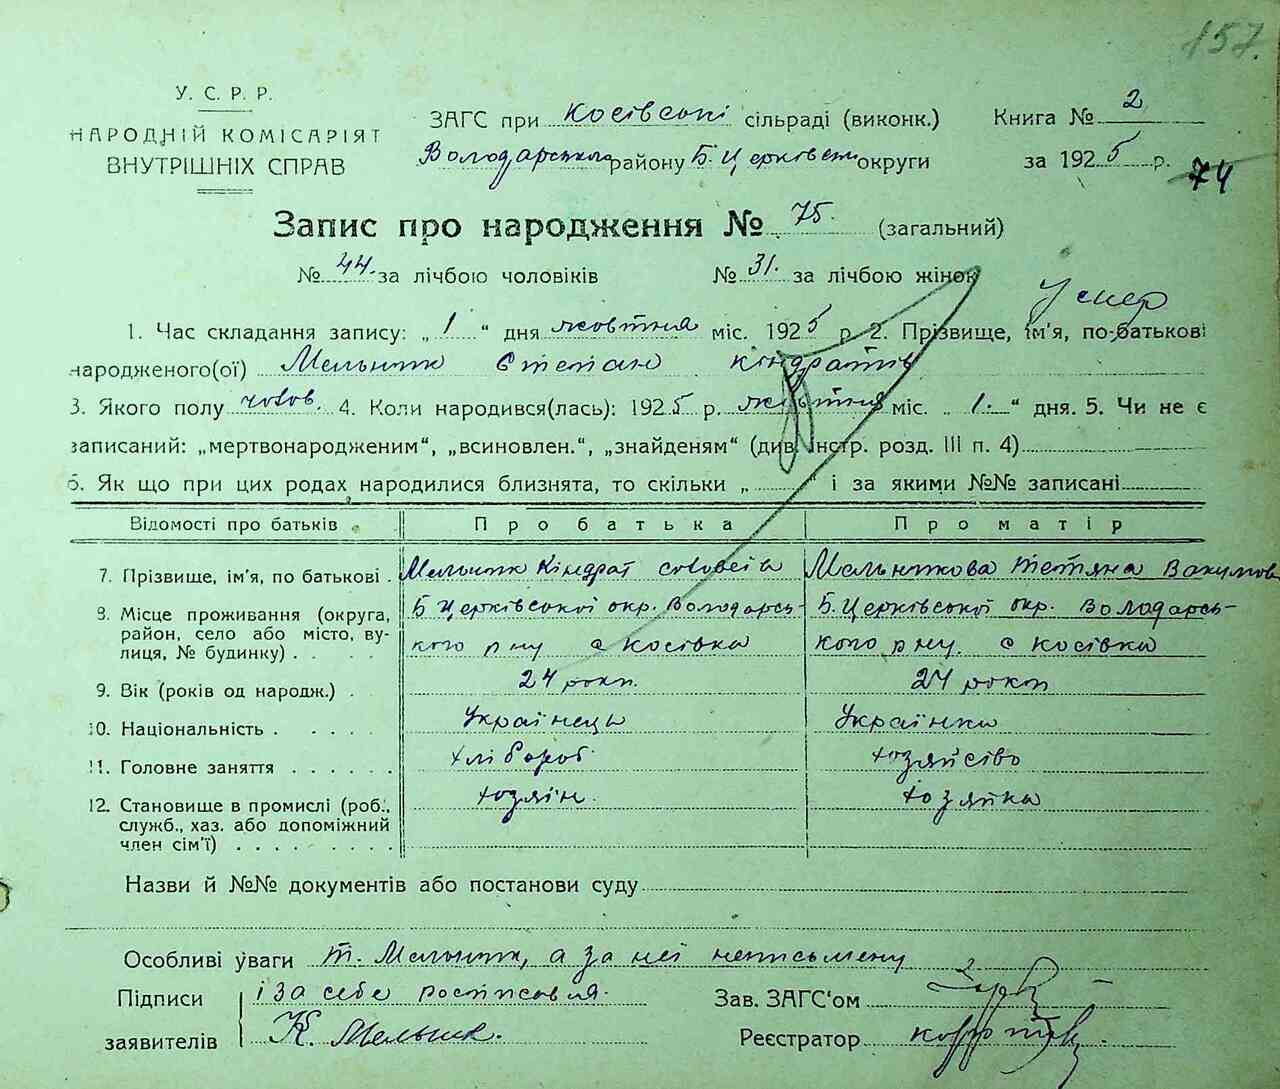 157.
У. С. Р. Р.
НАРОДНІЙ КОМІСАРІЯТ
ВНУТРІШНІХ СПРАВ
ЗАГС при Косівські сільраді (виконк.)
Книга № 2
Володарського району Б. Церківськ округи
за 1925 р.
74
Запис про народження № 75. (загальний)
№ 44. за лічбою чоловіків № 31. за лічбою жінок
Умер
1. Час складання запису: „ 1 “ дня жовтня міс. 1925 р. 2. Прізвище, ім'я, по-батькові
народженого(ої) Мельник Степан Кіндратів
3. Якого полу чолов. 4. Коли народився(лась): 1925 р. жовтня міс. „ 1. “ дня. 5. Чи не є
записаний: „мертвонародженим“, „всиновлен.“, „знайденям“ (див. Інстр. розд. III п. 4)
6. Як що при цих родах народилися близнята, то скільки „ “ і за якими №№ записані
Відомості про батьків Про батька Про матір
7. Прізвище, ім'я, по батькові . Мельник Кіндрат Мельникова Тетяна
8. Місце проживання (округа, район, село або місто, вулиця, № будинку) . . . . .
Б Церківської окр. Володарсь- Б. Церківської окр. Володарсь-
кого р ну с Косівка кого р ну. с Косівка
9. Вік (років од народж.) . 24 роки. 24 роки
10. Національність . . . . . . Українець Українка
11. Головне заняття . . . . . . хлібороб хозяйство
12. Становище в промислі (роб., служб., хаз. або допоміжний член сім'ї) . . . . . . . . хозяін. хозяйка
Назви й №№ документів або постанови суду
Особливі уваги Т. Мельник, а за неї неписьмену
Підписи і за себе росписався. Зав. ЗАГС'ом
заявителів К. Мельник. Реєстратор